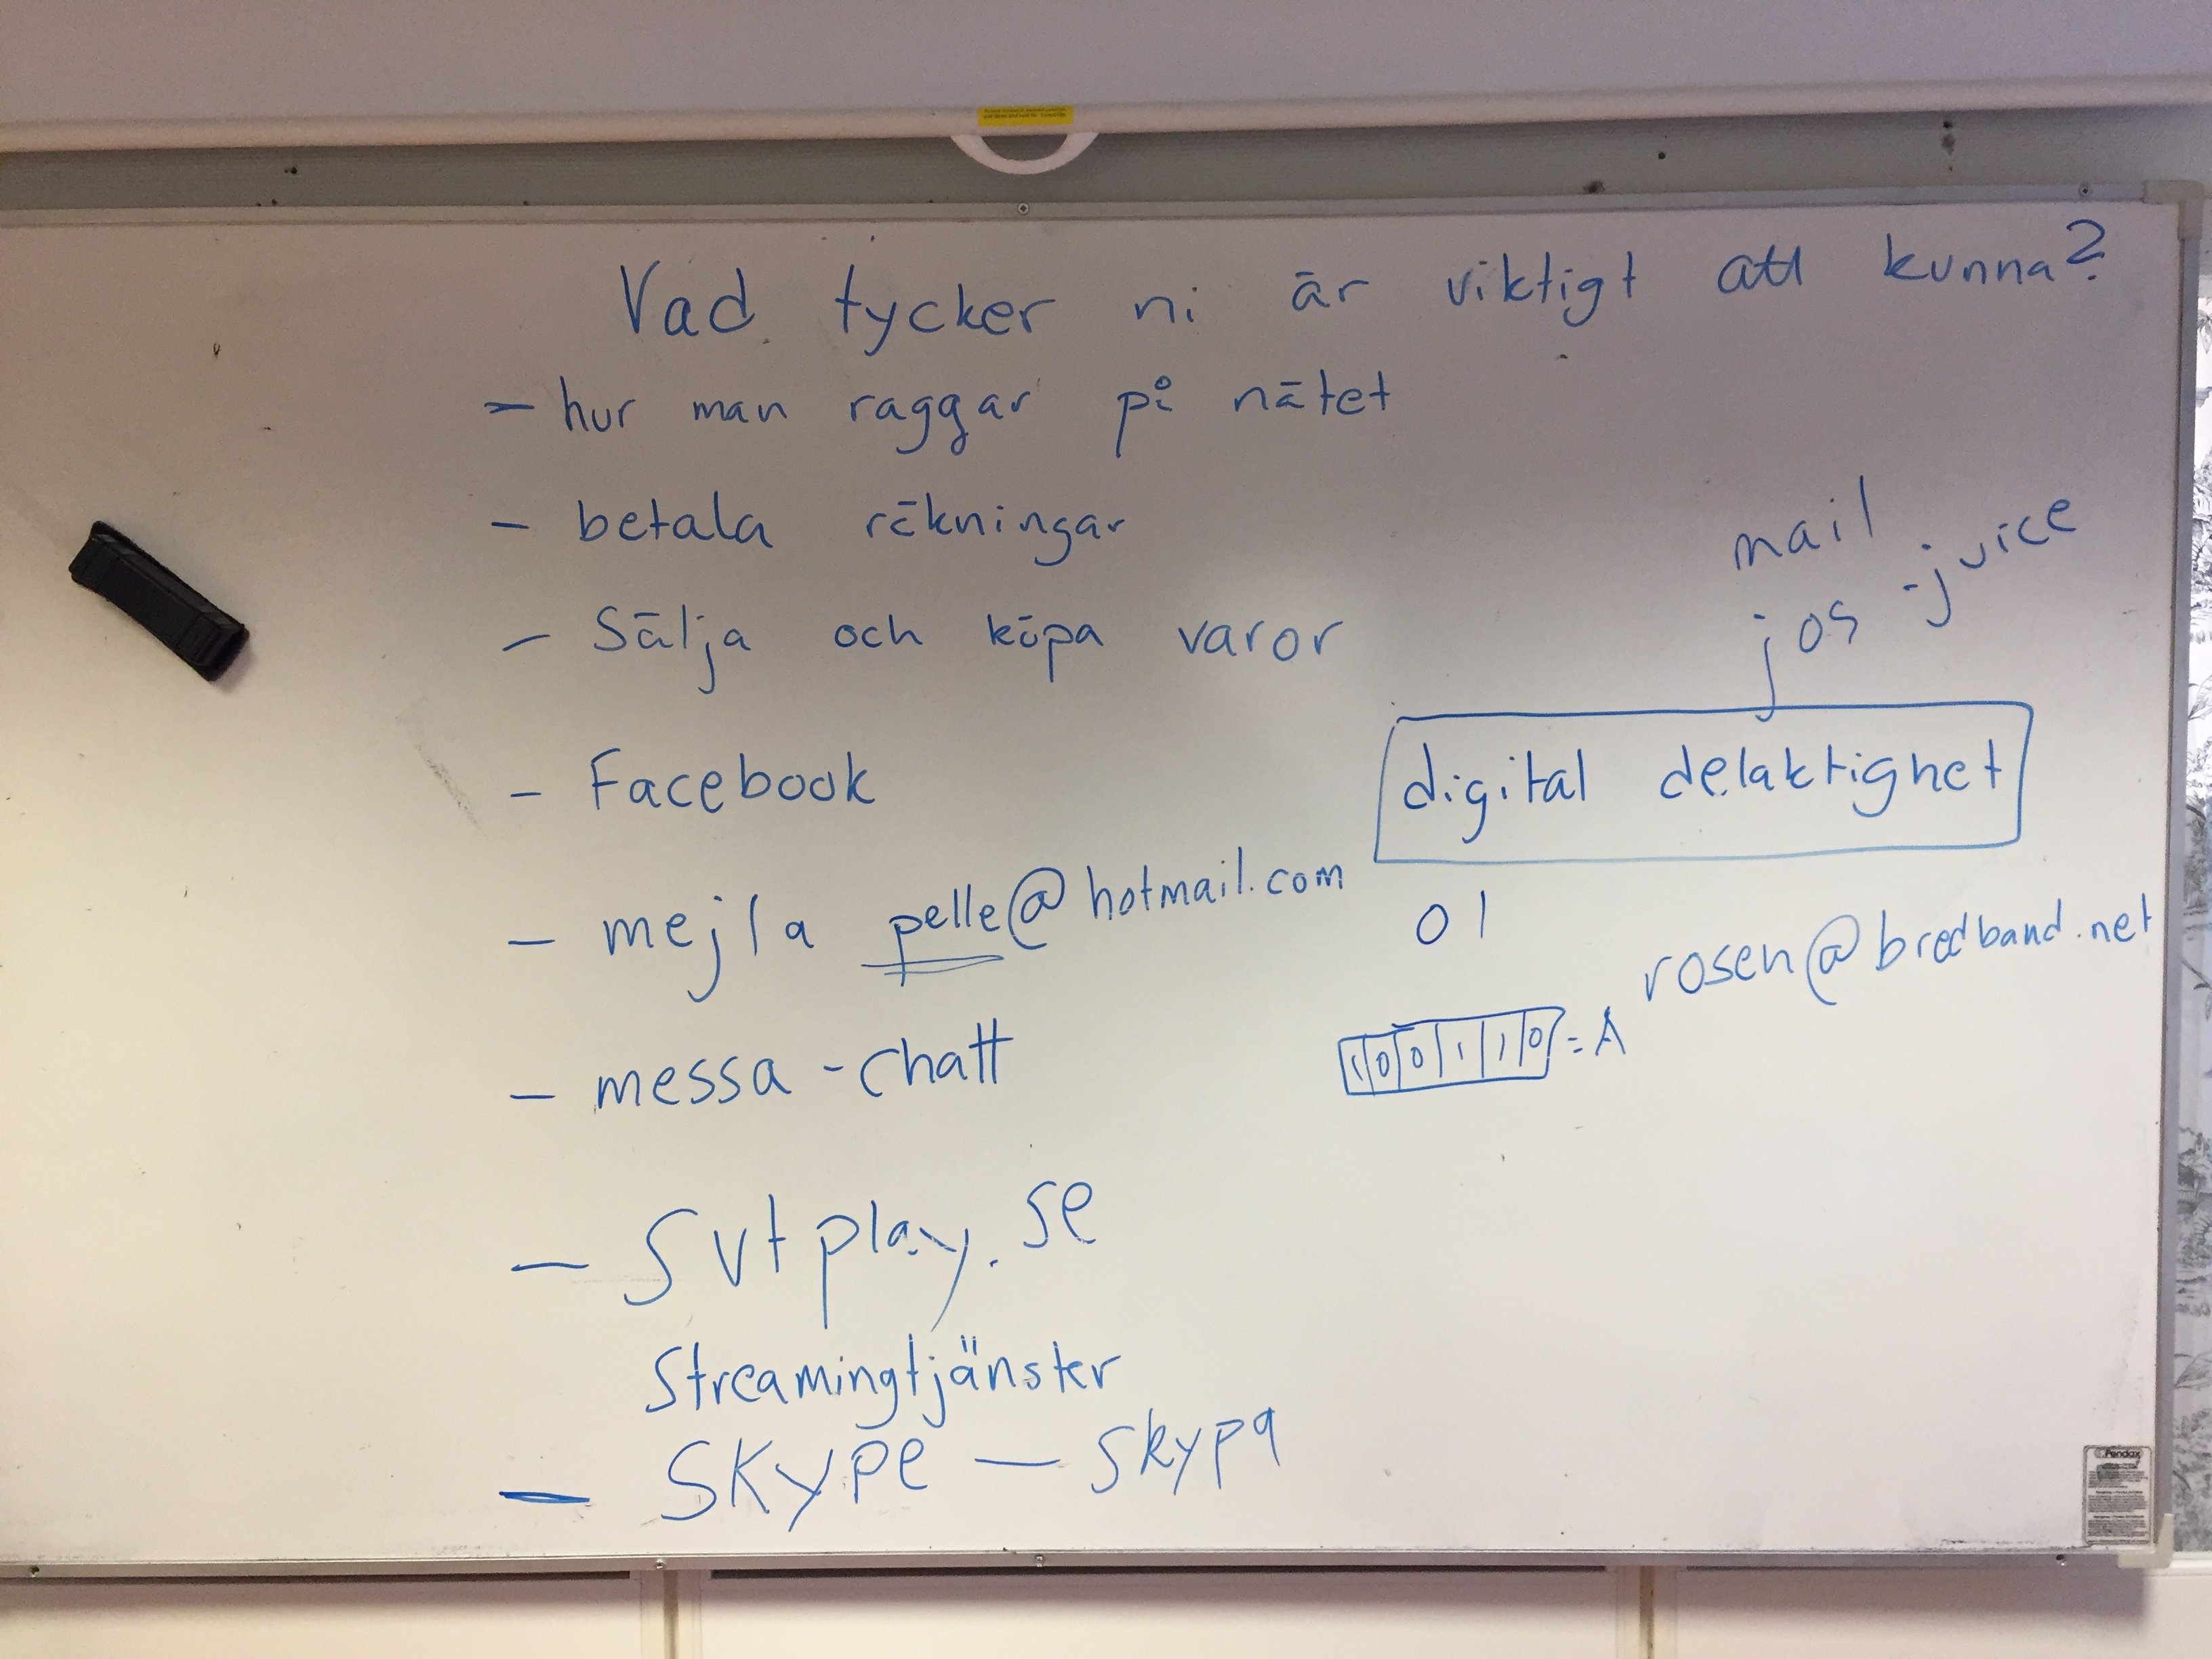 Vad tycker ni är viktigt att kunna?
- hur man raggar på nätet
- betala räkningar
- Sälja och köpa varor
- Facebook
- mejla pelle@hotmail.com
- messa - chatt
- Svtplay.se
Streamingtjänster
- Skype - skypa
mail
jos - juice
digital delaktighet
0 1
rosen@bredband.net
1 0 0 1 1 0 = A
Pendax